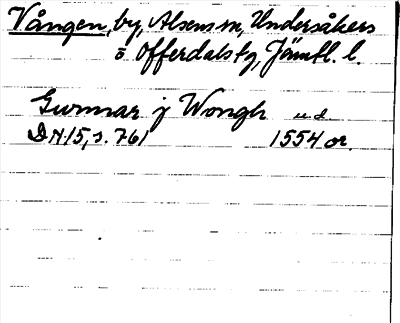 Vången, by, Alsens sn, Undersåkers
o. Offerdals tg, Jämtl. l.
Gunnar j Wongh ud
DN 15, s. 761 1554 or.